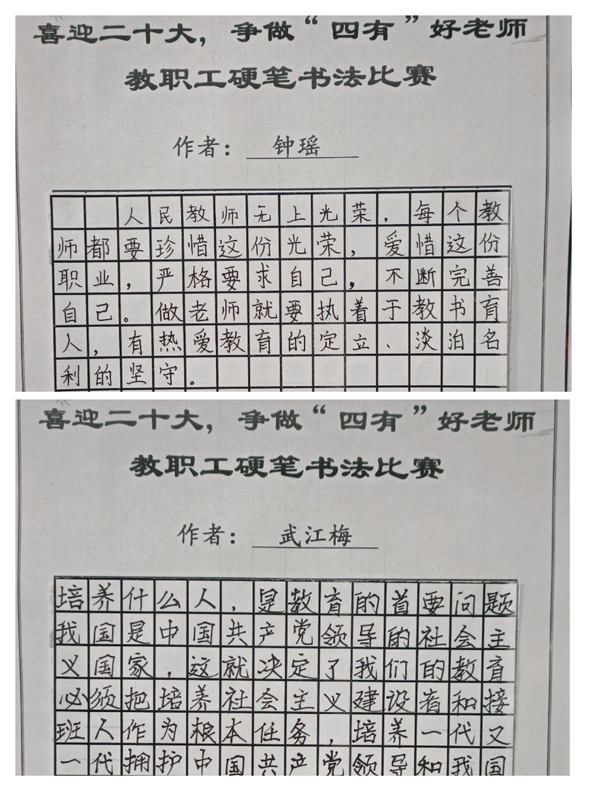 喜迎二十大，争做“四有”好老师
教职工硬笔书法比赛
作者：钟瑶
人民教师无上光荣，每个教
师都要珍惜这份光荣，爱惜这份
职业，严格要求自己，不断完善
自己。做老师就要执着于教书育
人，有热爱教育的定立、淡泊名
利的坚守。
喜迎二十大，争做“四有”好老师
教职工硬笔书法比赛
作者：武江梅
培养什么人，是教育的首要问题
我国是中国共产党领导的社会主
义国家，这就决定了我们的教育
必须把培养社会主义建设者和接
班人作为根本任务，培养一代又
一代拥护中国共产党领导和我国